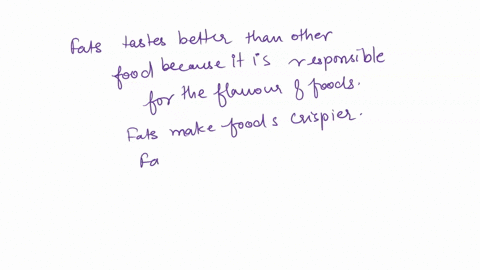 Fats tastes better than other
food because it is responsible
for the flavour of foods.
Fats make foods crispier.
Fa